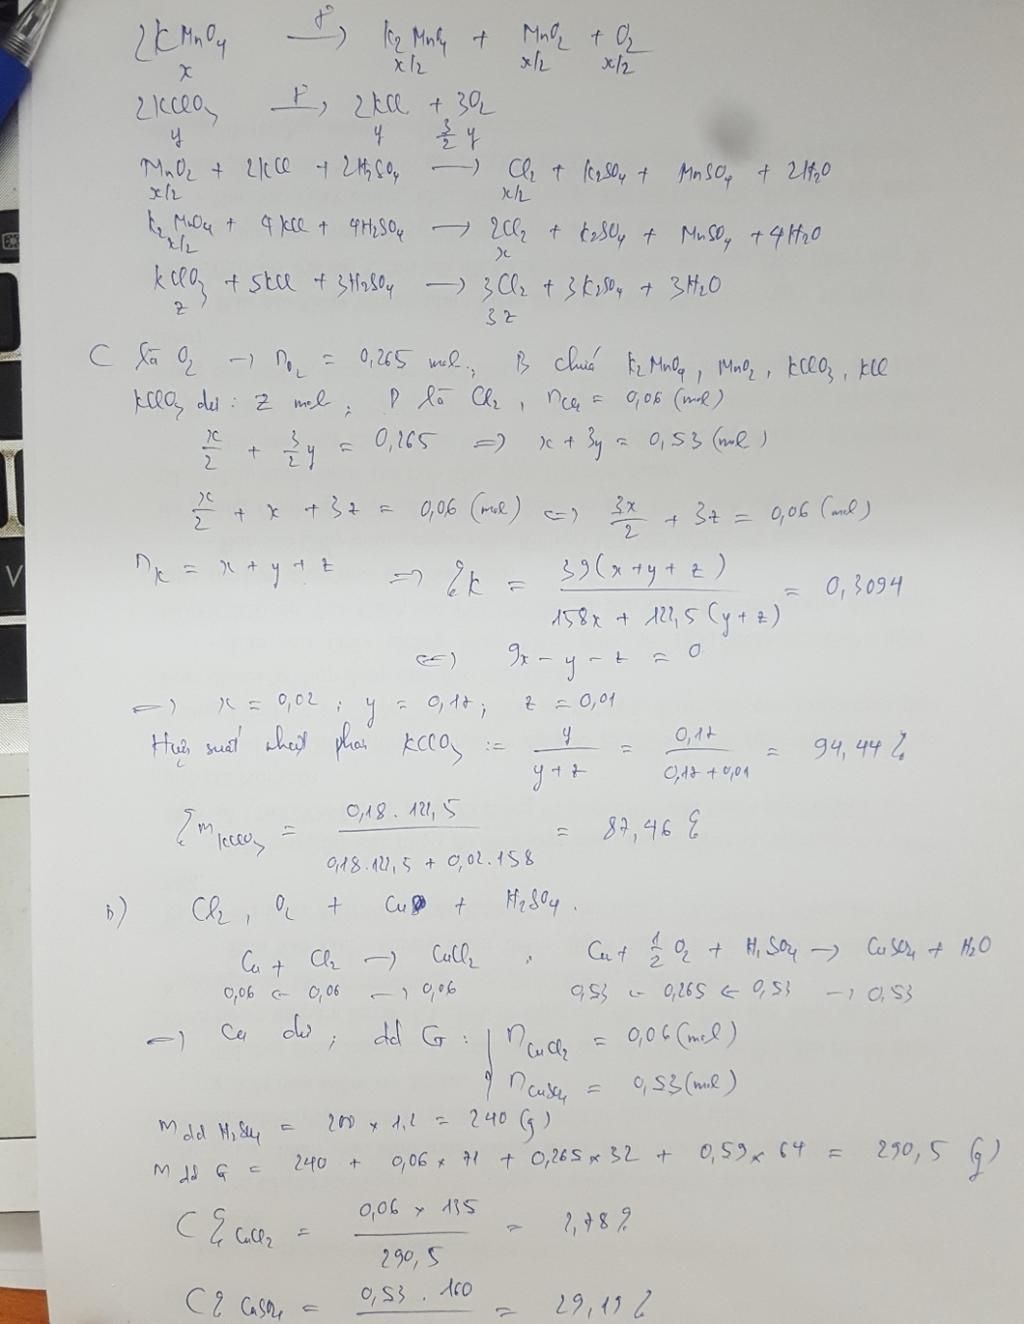 2KMnO4 —t°→ K2MnO4 + MnO2 + O2
x x/2 x/2 x/2
2KClO3 —t°→ 2KCl + 3O2
y y 3/2 y
MnO2 + 2KCl + 2H2SO4 → Cl2 + K2SO4 + MnSO4 + 2H2O
x/2 x/2
K2MnO4 + 4KCl + 4H2SO4 → 2Cl2 + K2SO4 + MnSO4 + 4H2O
x/2 x
KClO3 + 5KCl + 3H2SO4 → 3Cl2 + 3K2SO4 + 3H2O
z 3z
C là O2 → nO2 = 0,265 mol., B chứa K2MnO4, MnO2, KClO3, KCl
KClO3 dư: z mol; D là Cl2, nCl2 = 0,06 (mol)
x/2 + 3/2 y = 0,265 => x + 3y = 0,53 (mol)
x/2 + x + 3z = 0,06 (mol) <=> 3x/2 + 3z = 0,06 (mol)
nK = x + y + z => %K = 39(x + y + z) / 158x + 122,5(y + z) = 0,3094
<=> 9x - y - z = 0
=> x = 0,02; y = 0,17; z = 0,01
Hiệu suất nhiệt phân KClO3 := y / y + z = 0,17 / 0,17 + 0,01 = 94,44%
%mKClO3 = 0,18 . 122,5 / 0,18.122,5 + 0,02.158 = 87,46%
b) Cl2, O2 + Cu + H2SO4.
Cu + Cl2 → CuCl2, Cu + 1/2 O2 + H2SO4 → CuSO4 + H2O
0,06 ← 0,06 → 0,06 0,53 ← 0,265 ← 0,53 → 0,53
=> Cu dư; dd G: { nCuCl2 = 0,06 (mol)
nCuSO4 = 0,53 (mol)
mdd H2SO4 = 200 x 1,2 = 240 (g)
mdd G = 240 + 0,06 x 71 + 0,265 x 32 + 0,59 x 64 = 290,5 (g)
C%CuCl2 = 0,06 x 135 / 290,5 = 2,78%
C%CuSO4 = 0,53 . 160 / = 29,19%